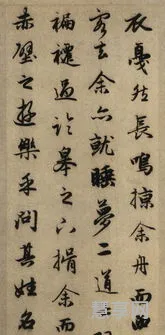 衣戛然長鳴掠余舟而西
客去余亦就睡夢二道
過臨皋之下揖余而
赤壁之遊樂乎問其姓名